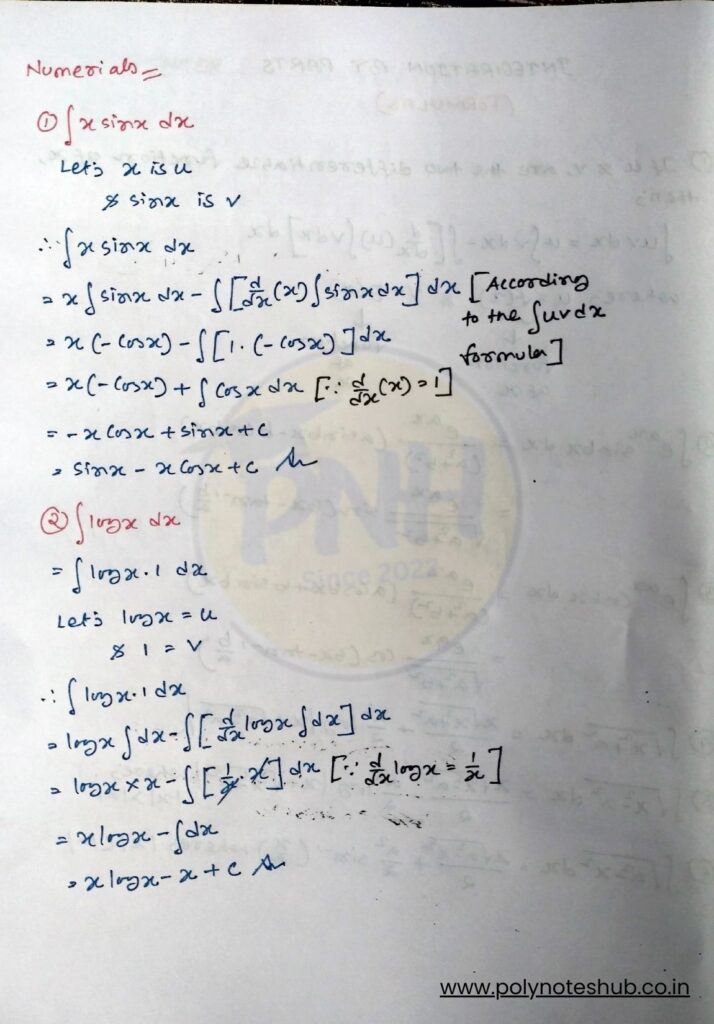 Numerials =
① ∫x sinx dx
Let's x is u
& sinx is v
∴ ∫x sinx dx
= x∫sinx dx - ∫[d/dx(x)∫sinxdx]dx [According
to the ∫uvdx
formula]
= x(-cosx) - ∫[1.(-cosx)]dx
= x(-cosx) + ∫cosx dx [∵ d/dx(x) = 1]
= -x cosx + sinx + c
= sinx - x cosx + c
② ∫logx dx
= ∫logx.1 dx
Let's logx = u
& 1 = v
∴ ∫logx.1 dx
= logx∫dx - ∫[d/dx logx∫dx]dx
= logx × x - ∫[1/x.x]dx [∵ d/dx logx = 1/x]
= x logx - ∫dx
= x logx - x + c
PNH
Since 2022
www.polynoteshub.co.in